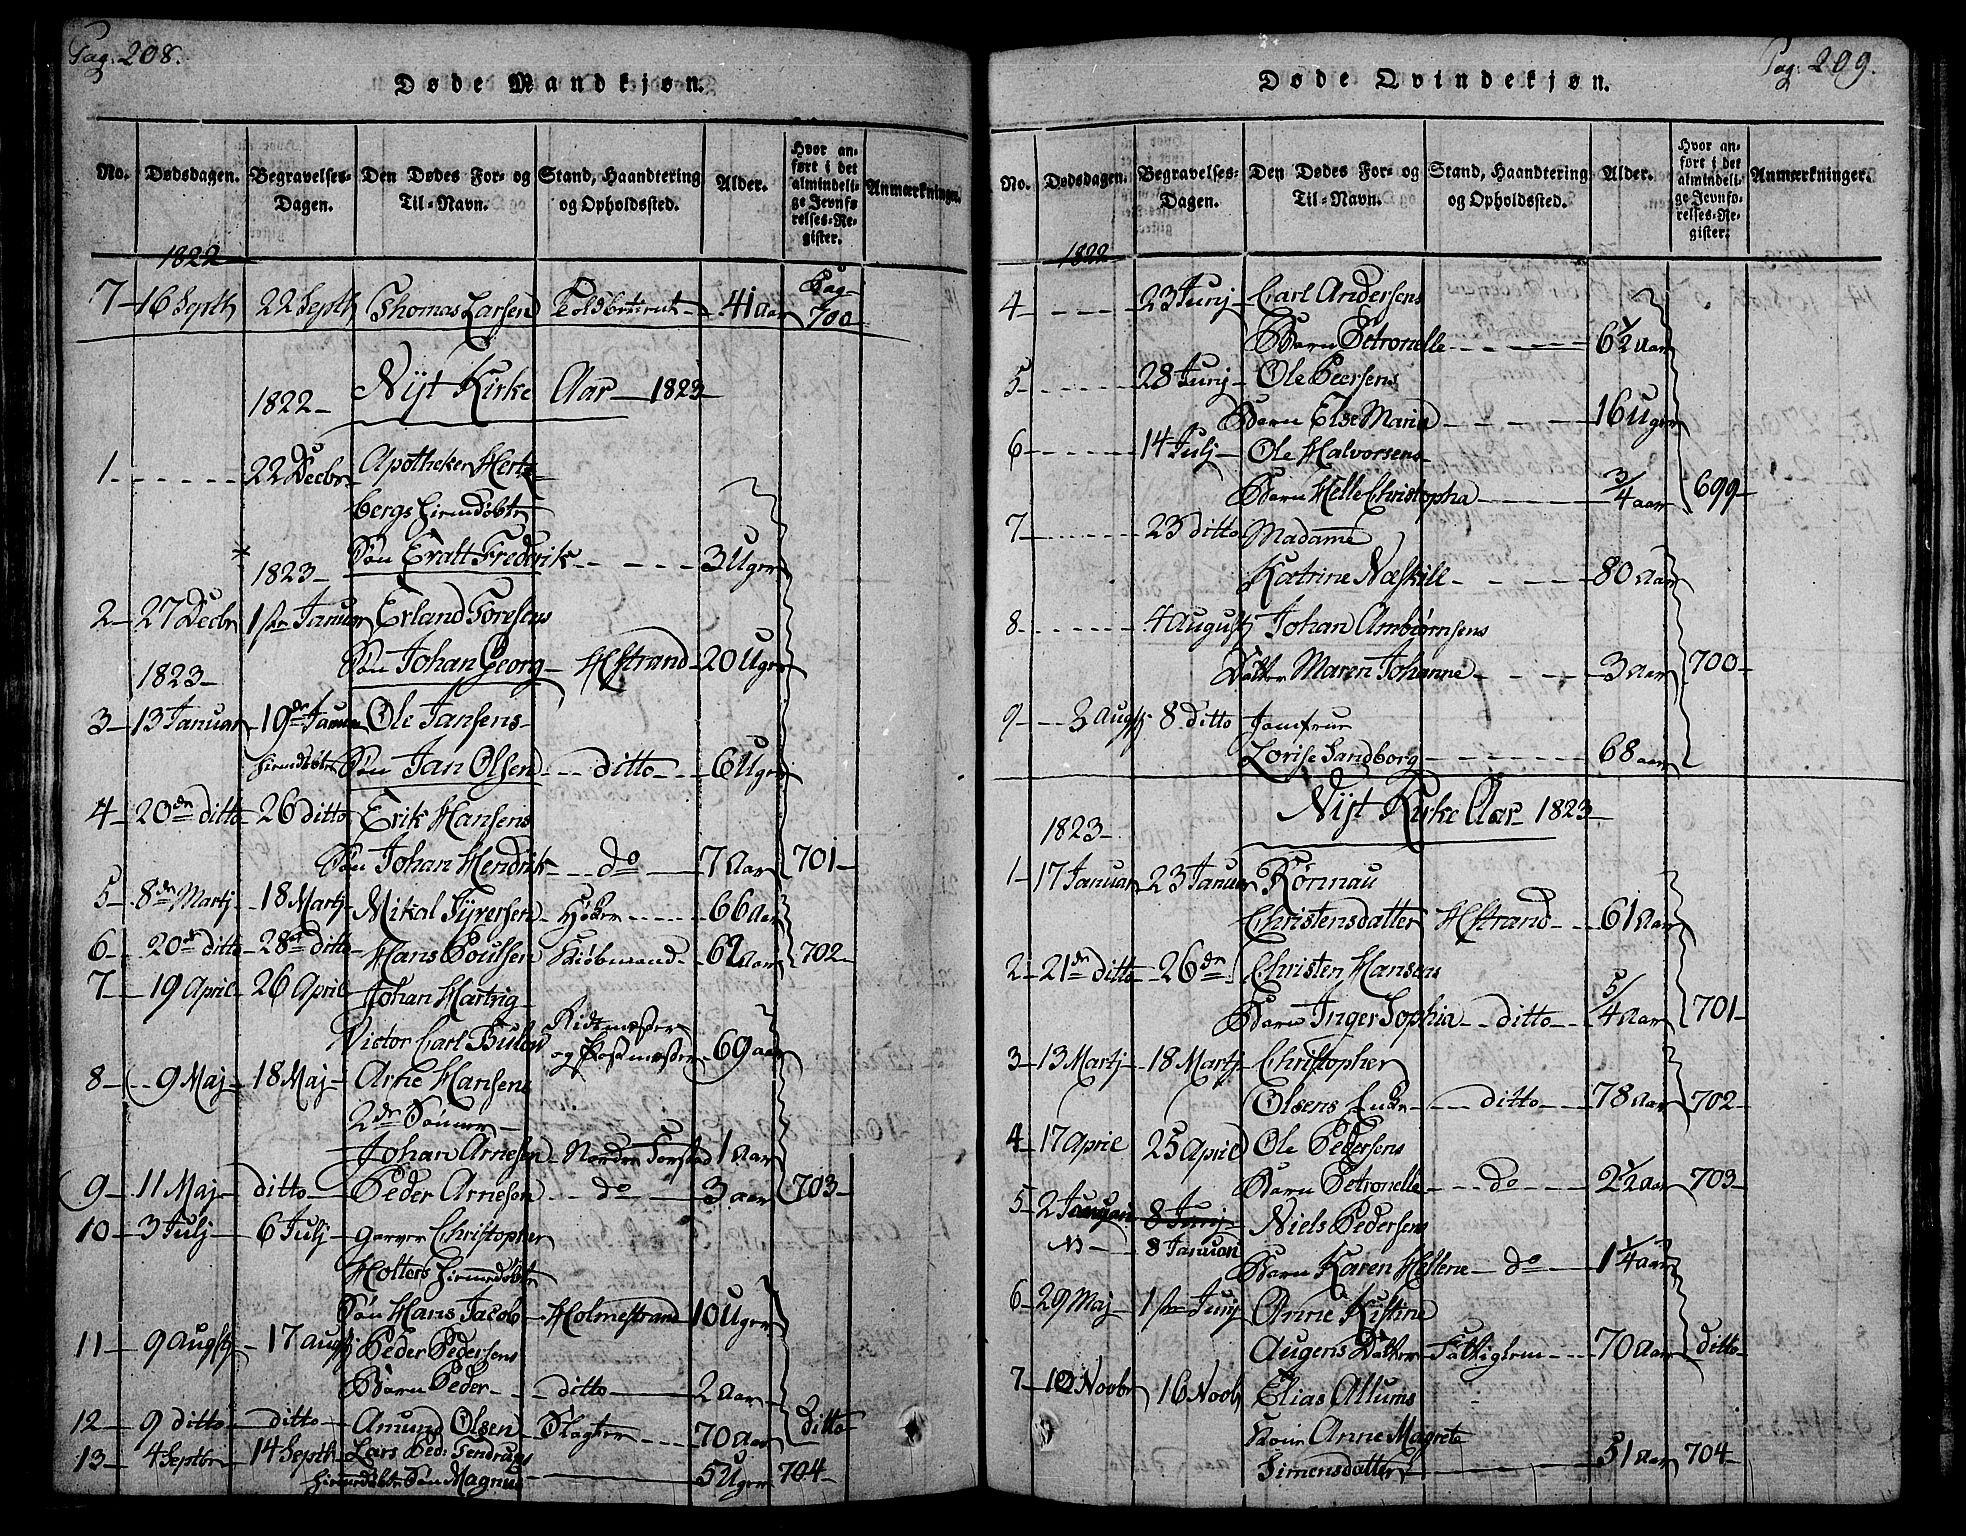 Pag. 208.
Døde Mandkjøn.
No.
Dødsdagen.
Begravelses-
Dagen.
Den Dødes For- og
Til-Navn.
Stand, Haandtering
og Opholdssted.
Alder.
Hvor an-
ført i det
almindeli-
ge Jevnfø-
relses-Re-
gister.
Anmærkninger.
1822
7 - 16 Septbr 22 Septbr Thomas Larsen 41 aar Pag.
700
Nyt Kirke Aar - 1823
1822 -
1. 22 Decbr Apotheker Hertz-
bergs hiemdøbte
Søn Eratt Frederik 3 Uger
1823 -
2 - 27 Decbr 1ste Januar Erland Toresens
Søn Johan Georg - HStrand - 20 Uger
1823 -
3 - 13 Januar 19de Januar Ole Jansens
hiemdøbte Søn Jan Olsen - ditto - 6 Uger
4 - 20de ditto - 26 ditto Erik Hansens
Søn Johan Hendrik - do - 7 Aar 701 -
5 - 8de Martj - 18 Martj - Mikal Syversen - Høker - 66 Aar
6 - 20de ditto - 28de ditto - Hans Poulsen Kiøbmand - 62 Aar 702 -
7 - 19 April 26 April Johan Hartvig
Victor Carl Bulow Ridtmester
og Postmester - 69 aar
8 - 9 Maj - 18 Maj - Arne Hansens
2de Sønner -
Johan Arnesen - Nordre Torstad 1 Aar
9 - 11 Maj - ditto - Peder Arnesen - do - 3 aar 703 -
10 - 3 Julj 6 Julj - Garver Christopher
Holters hiemdøbte
Søn Hans Jacob - Holmestrand 10 Uger
11 - 9 Augstj - 17 Augstj Peder Pedersens
Barn Peder - ditto - 2 Aar
12 - 9 ditto - ditto - Amund Olsen - Slagter 70 Aar ditto
13 - 4 Septbr 14 Septbr Lars Ped:
hiemdøbte Søn Magnus 5 Uger 704 -
Pag. 209.
Døde Qvindekjøn.
No.
Dødsdagen.
Begravelses-
Dagen.
Den Dødes For- og
Til-Navn.
Stand, Haandtering
og Opholdssted.
Alder.
Hvor an-
ført i det
almindeli-
ge Jevnfø-
relses-Re-
gister.
Anmærkninger.
1822
4 - 23 Junj Carl Andersens
Barn Petronelle 6½ Aar
5 - 28 Junj - Ole Peersens
Barn Else Maria 16 Uger
6 - 14 Julj - Ole Halvorsens
Barn Helle Christopha 3/4 aar 699 -
7 - 23 ditto Madame
Katrine Næskill 80 Aar
8 - 4 Augustj Johan Ambiørnsens
Datter Maren Johanne 3 Aar 700 -
9 - 3 Augstj 8 ditto Jomfrue
Lovise Sandborg 68 aar
Nyt Kirke Aar 1823 -
1823 -
1 - 17 Januar 23 Januar Rønnau
Christensdatter HStrand 61 Aar
2 - 21de ditto - 26de Christen Hansens
Barn Inger Sophia - ditto - 5/4 Aar 701 -
3 - 13 Martj 18 Martj Christopher
Olsens Enke - ditto - 78 Aar 702 -
4 - 17 April 25 April Ole Pedersens
Barn Petronelle - do - 2½ Aar 703 -
5 - 2 Januari 8 Junj - Niels Pedersens
8 Januari Barn Karen Hellene - do - 1¼ Aar
6 - 29 Maj - 1ste Junj Anne Kistine
Augens Datter - Fattiglem - 70 Aar ditto
7 - 10 Novbr 16 Novbr Elias Allums
Kone Anne Magrete
Simensdatter 51 Aar 704 -